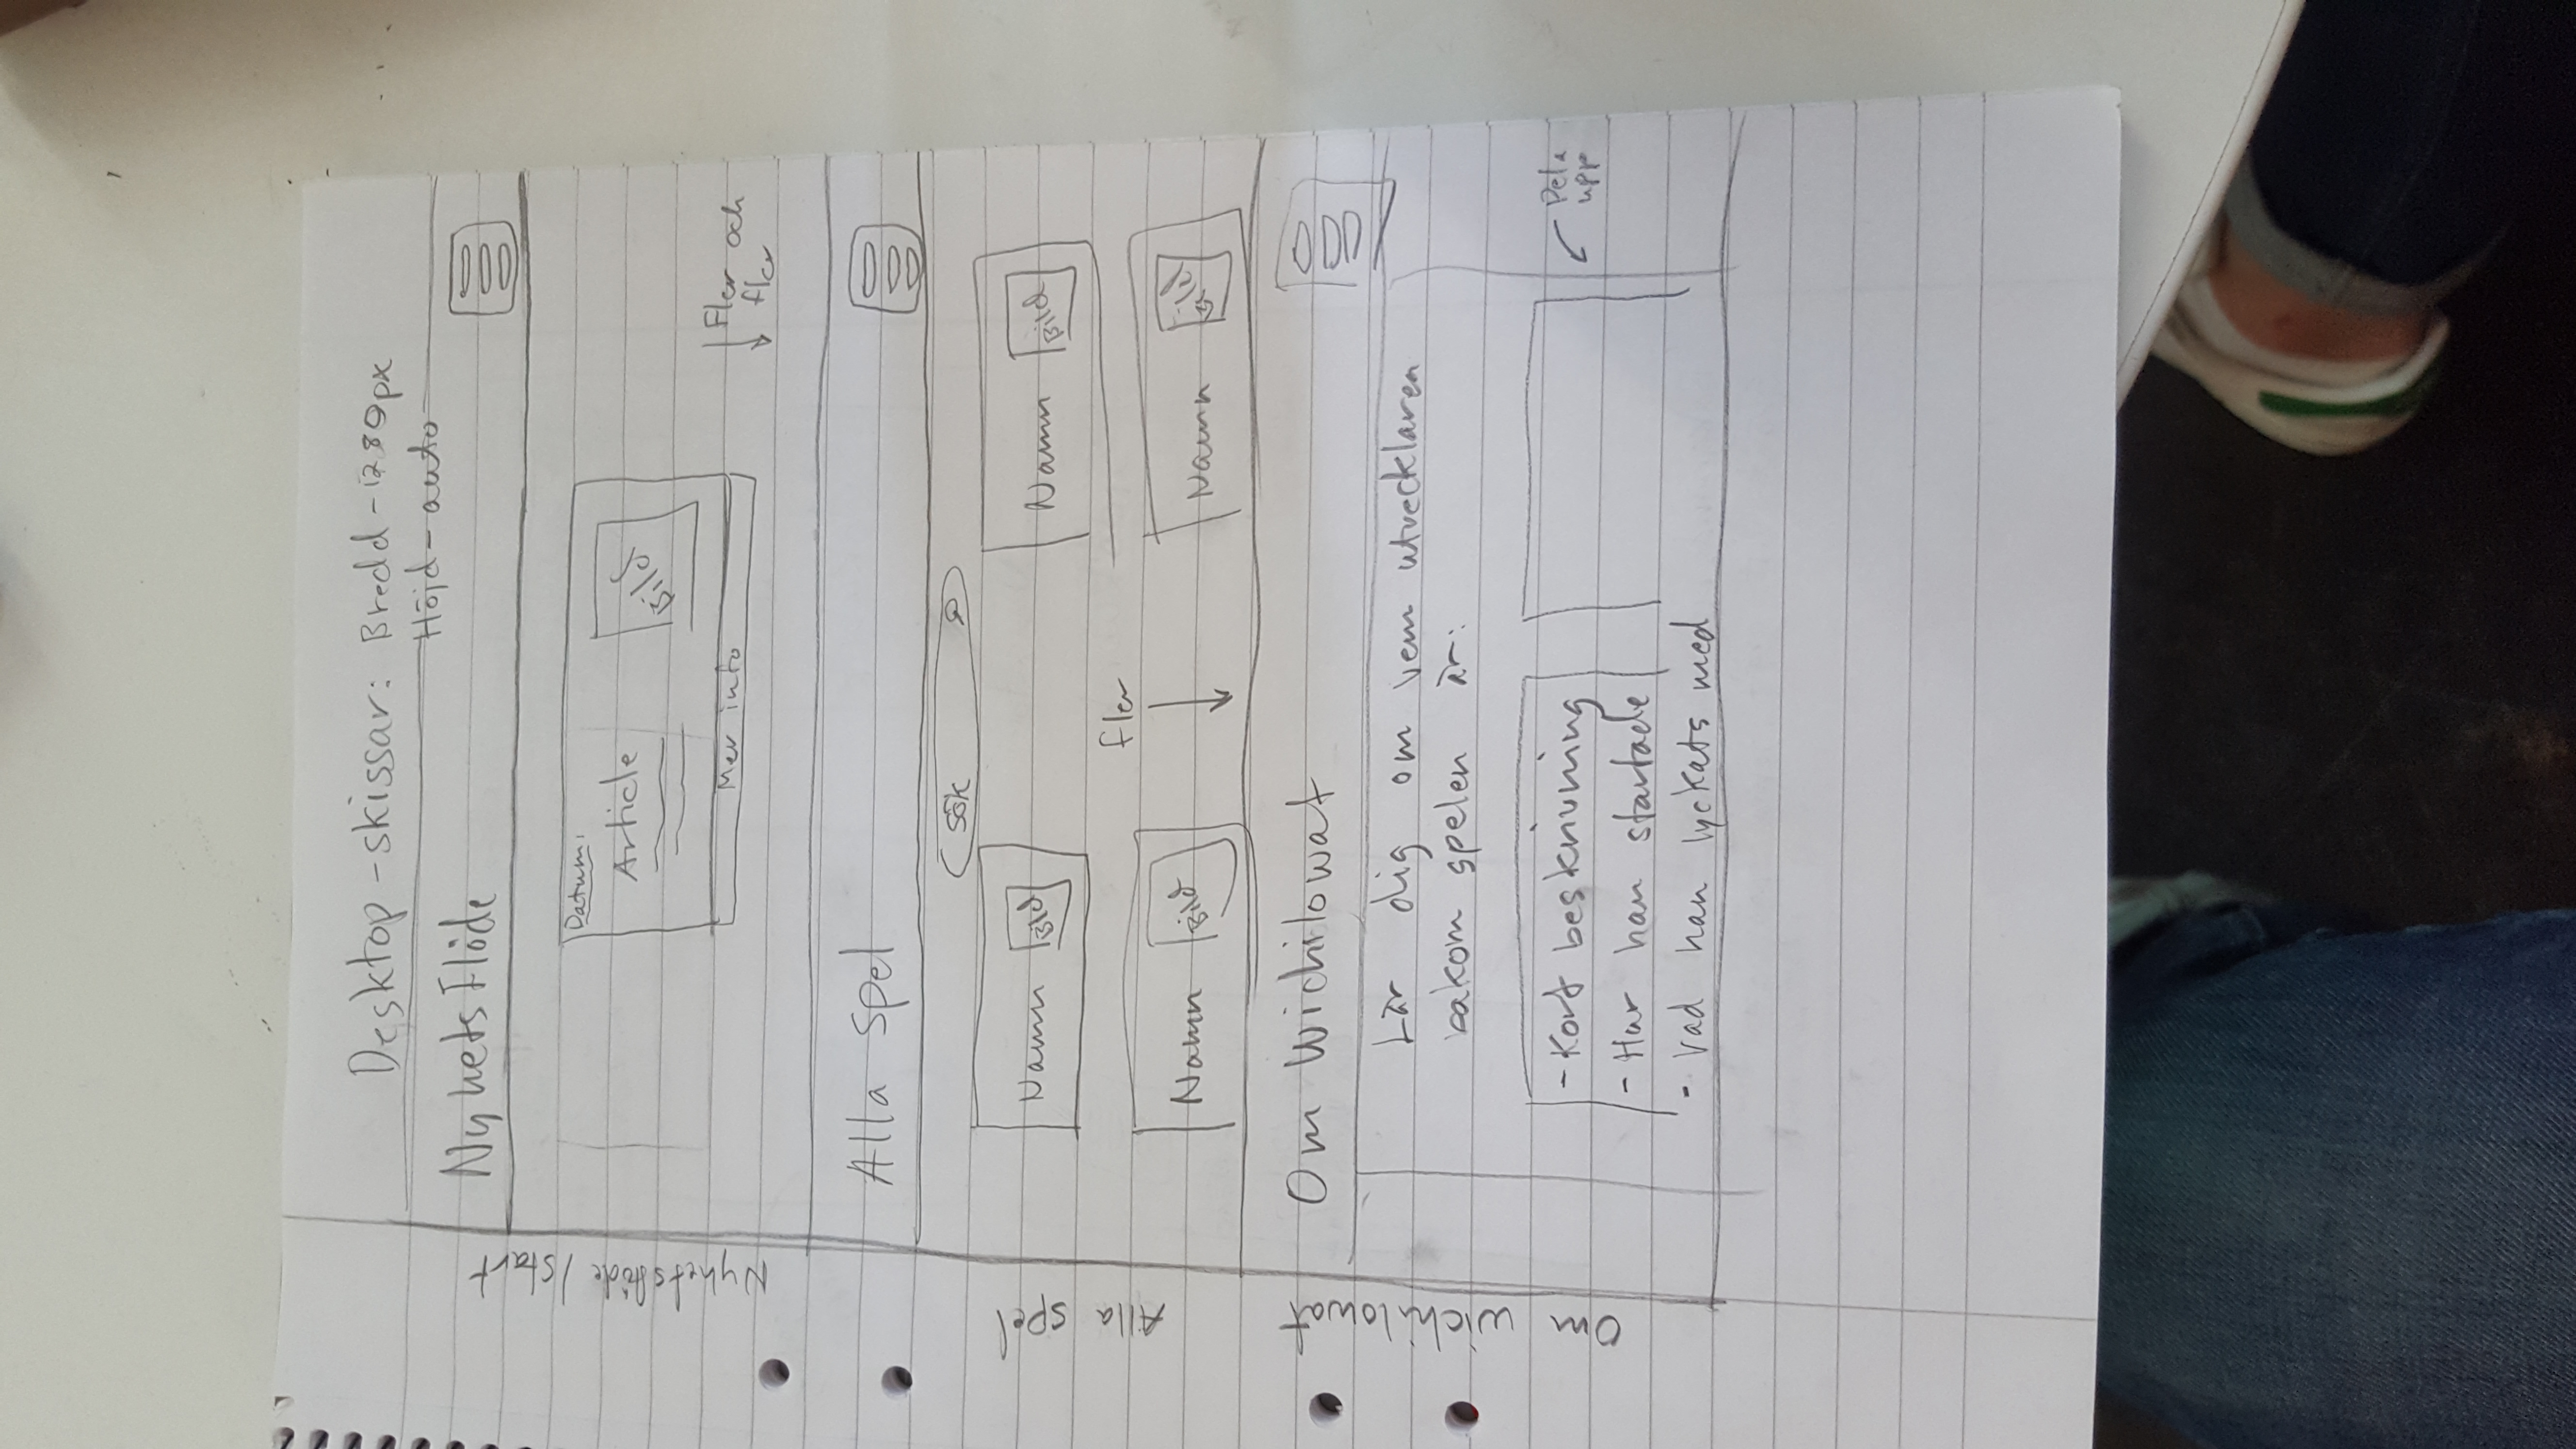 Desktop-skissar: Bredd-1280px
Höjd-auto
Nyhetsflöde/start
Nyhetsflöde
Datum:
Article
Bild
Mer info
Fler och
fler
Alla spel
Alla Spel
Sök
Namn Bild
Namn Bild
fler
Namn Bild
Namn Bild
Om Wichilowat
Om Wichilowat
Lär dig om vem utvecklaren
bakom spelen är:
- Kort beskrivning
- Hur han startade
- Vad han lyckats med
upp